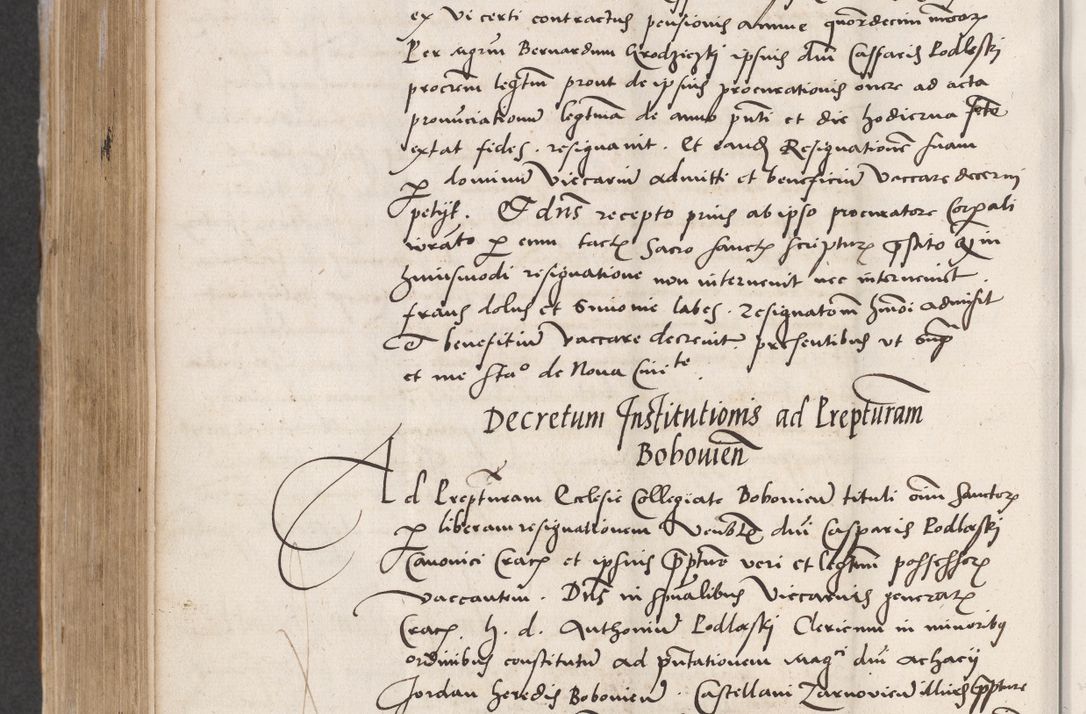 ex vi certi contractus pensionis annue quordecim mcar
Per mgrm Bernardum Grodziczki ipsius dni Casparis Podleski
procrem legtm prout de ipsius procurationis onere ad acta
pronunciationum legtma de anno pnti et die hodierna fcte
extat fides. resignavit. Et eandem Resignationem suam
p dominum Viccarium admitti et beneficium vaccare decerni
petijt. Et dns recepto prius ab ipso procuratore Corpali
iurato p eum tactis sacro sanctis scripturis qd in
huiusmodi resignatione non intervenit nec interveniet
fraus dolus et Simonie labes. Resignatom hmoi admisit
Et benefitium vaccare decrevit. presentibus ut sup
et me Sta° de Nova Civite.
Decretum Institutionis ad Prepturam
Bobovien
Ad Prepturam Ecclesie Collegiate Bobovien tituli oim Sanctor
p liberam resignationem Venblis dni Casparis Podleski
Canonici Crac et ipsius Ppture veri et legtmi possessor
vaccantem. Dns in spualibus Viccarius generalis
Crac. h. d. Anthonium Podleski Clericum in minoribus
ordinibus constitutum ad pntationem Magci dni Achacij
Jordan heredis Bobovien. Castellani Zarnovien illius Ppture